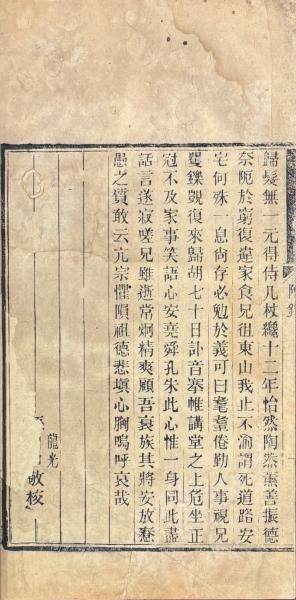 歸髮無一元得侍几杖纔十二年怡然陶然薰善振德
奈阨於窮復違家食兄徂東山我止不渝謂死道路安
宅何殊一息尚存必勉於義可曰耄耋倦勤人事視兄
矍鑠覬復來歸胡七十日訃音摹帷講堂之上危坐正
冠不及家事笑語心安堯舜孔朱此心惟一身同此盡
話言遂寂嗟兄雖逝常炯精爽顧吾衰族其將安放惷
愚之質敢云亢宗懼隕祖德悲塡心胸嗚呼哀哉
龍光
敬校
附錄